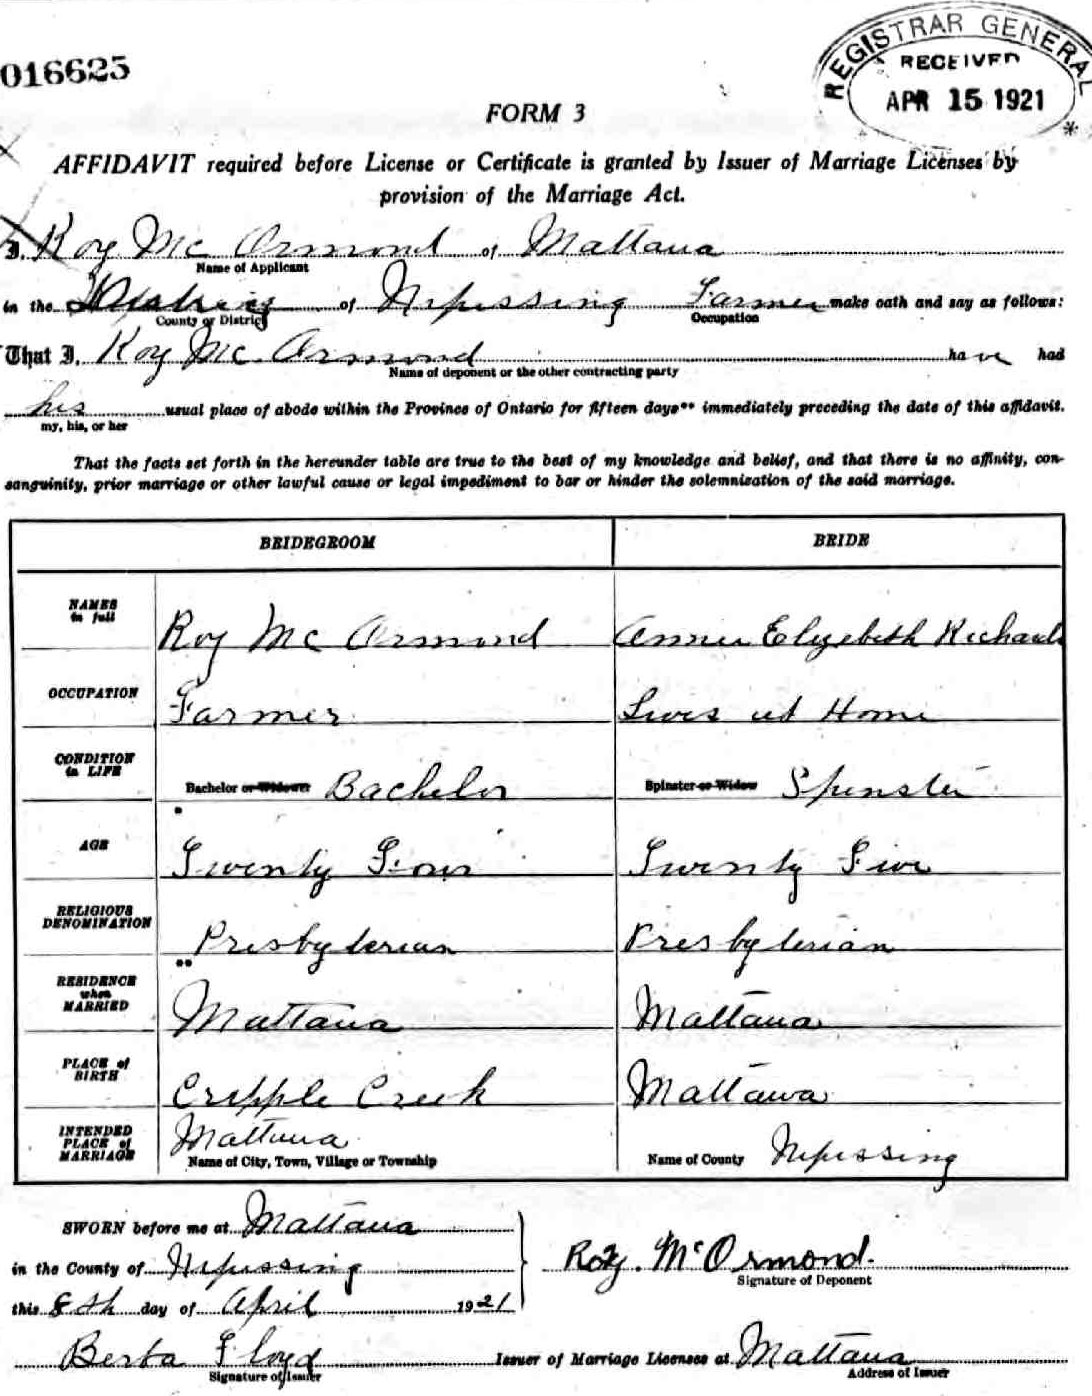 016625
REGISTRAR GENERAL
RECEIVED
APR 15 1921
FORM 3
AFFIDAVIT required before License or Certificate is granted by Issuer of Marriage Licenses by
provision of the Marriage Act.
I, Roy Mc Ormond of Mattawa
Name of Applicant
in the District of Nipissing Farmer make oath and say as follows:
County or District Occupation
That I, Roy Mc Ormond have had
Name of deponent or the other contracting party
his usual place of abode within the Province of Ontario for fifteen days** immediately preceding the date of this affidavit.
my, his, or her
That the facts set forth in the hereunder table are true to the best of my knowledge and belief, and that there is no affinity, con-
sanguinity, prior marriage or other lawful cause or legal impediment to bar or hinder the solemnization of the said marriage.
BRIDEGROOM BRIDE
NAMES
in full
Roy Mc Ormond Annie Elizebeth Richards
OCCUPATION Farmer Lives at Home
CONDITION
in LIFE
Bachelor or Widower Bachelor Spinster or Widow Spinster
AGE Twenty Four Twenty Five
RELIGIOUS
DENOMINATION
Presbyterian Presbyterian
RESIDENCE
when
MARRIED
Mattawa Mattawa
PLACE of
BIRTH
Cripple Creek Mattawa
INTENDED
PLACE of
MARRIAGE
Mattawa
Name of City, Town, Village or Township Name of County Nipissing
SWORN before me at Mattawa
in the County of Nipissing
Roy. McOrmond.
Signature of Deponent
this 8th day of April 1921
Berta Floyd Issuer of Marriage Licenses at Mattawa
Signature of Issuer Address of Issuer